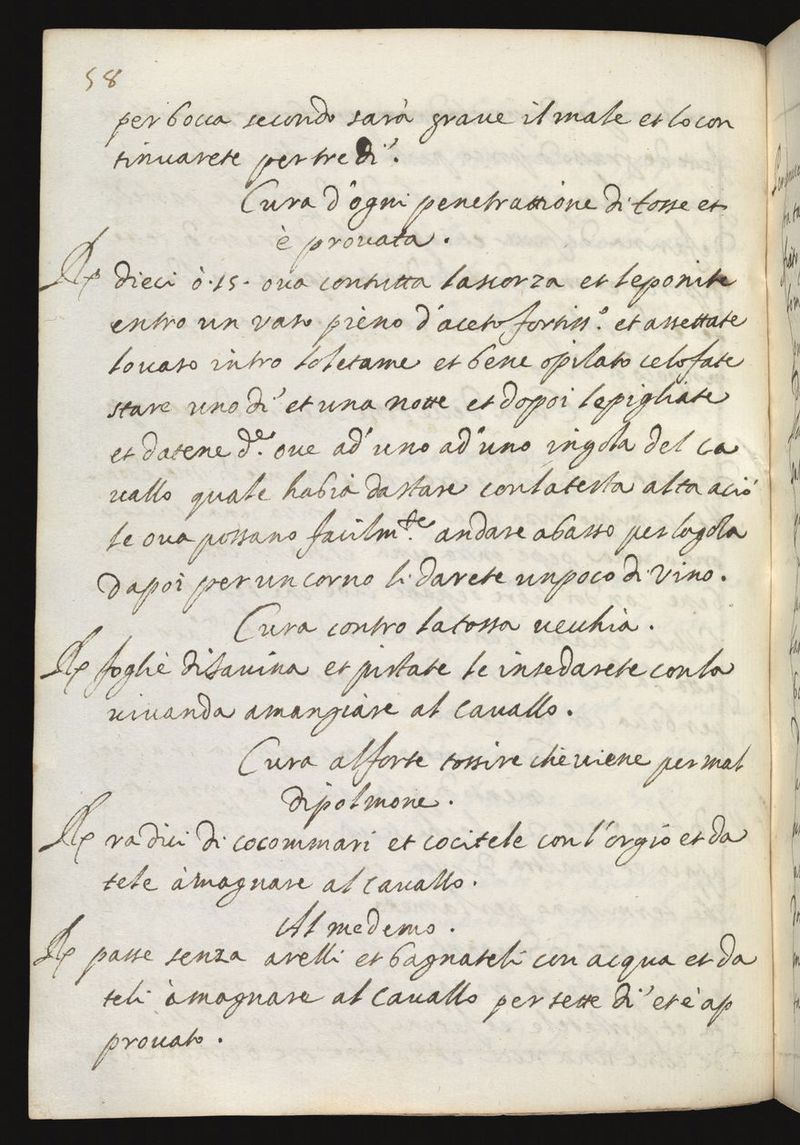 58
per bocca secondo sarà graue il male et lo con
tinuarete per tre dì.
Cura d'ogni penetrattione di tosse et
è prouata.
Rx dieci ò 15. oua con tutta la scorza et le ponite
entro un vaso pieno d'aceto fortiss.º et assettate
lo uaso intro lo letame et bene opilato ce lo fate
stare uno dì et una notte et dopoi le pigliate
et datene d.e oue ad uno ad uno in gola del ca
uallo quale habia da stare con la testa alta aciò
le oua possano facilm.te andare abasso per la gola
dapoi per un corno li darete un poco di vino.
Cura contro la tossa vecchia.
Rx foglie di savina et pistate le insedarete con la
vivanda a mangiare al cauallo.
Cura al forte tossire che uiene per mal
di polmone.
Rx radici di cocommari et cocitele con l'orgio et da
tele à magnare al cauallo.
Al medemo.
Rx passe senza avelli et bagnateli con acqua et da
teli à magnare al cauallo per sette dì et è ap
prouato.